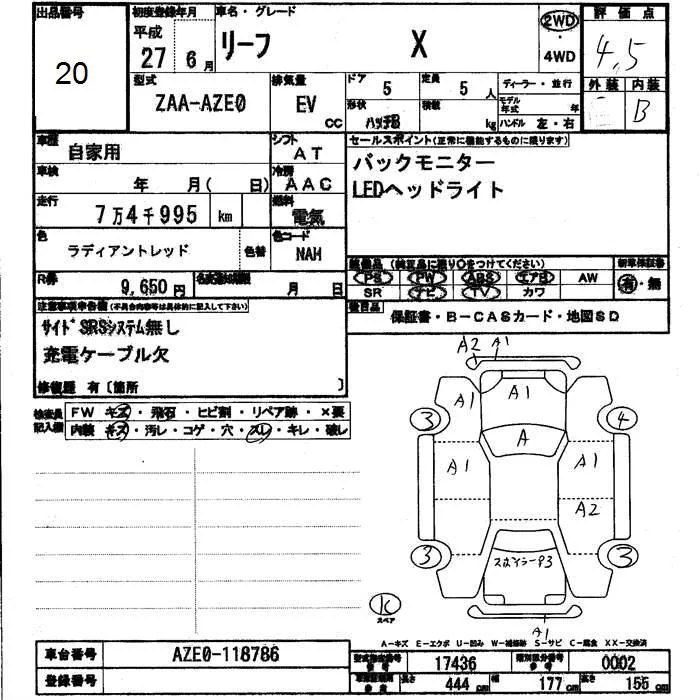 出品番号
20
初度登録年月
平成
27 6月
車名・グレード
リーフ X
2WD
・
4WD
評価点
4.5
外装 内装
B
型式
ZAA-AZE0
排気量
EV
CC
ドア
5
定員
5 人
形状
ハッチB
積載
kg
ディーラー・並行
モデル年式 年
ハンドル 左・右
車歴
自家用
シフト
AT
車検
年 月( 日)
冷房
AAC
走行
7万4千995 km
燃料
電気
色
ラディアントレッド
色替
色コード
NAH
R券
9,650円
名変期限
月 日
セールスポイント(正常に機能するものに限ります)
バックモニター
LEDヘッドライト
装備品 (純正品に限り○をつけてください)
PS PW ABS エアB AW
SR ナビ TV カワ
新車保証書
有・無
後日品
保証書・B-CASカード・地図SD
注意事項申告欄(不具合内容等は具体的に記入して下さい)
サイドSRSシステム無し
充電ケーブル欠
修復歴 有〔箇所 〕
検査員記入欄
FW キズ・飛石・ヒビ割・リペア跡・×要
内装 キズ・汚レ・コゲ・穴・スレ・キレ・破レ
A2 A1
A1 A1 A1
3 4
A
A1 A1
A2
3 3
スポイラーP3
K
スペア
A1
A-キズ E-エクボ U-凹み W-補修跡 S-サビ C-腐食 XX-交換済
車台番号
AZE0-118786
登録番号
型式指定番号
17436
類別区分番号
0002
長さ 444 cm
幅 177 cm
高さ 155 cm